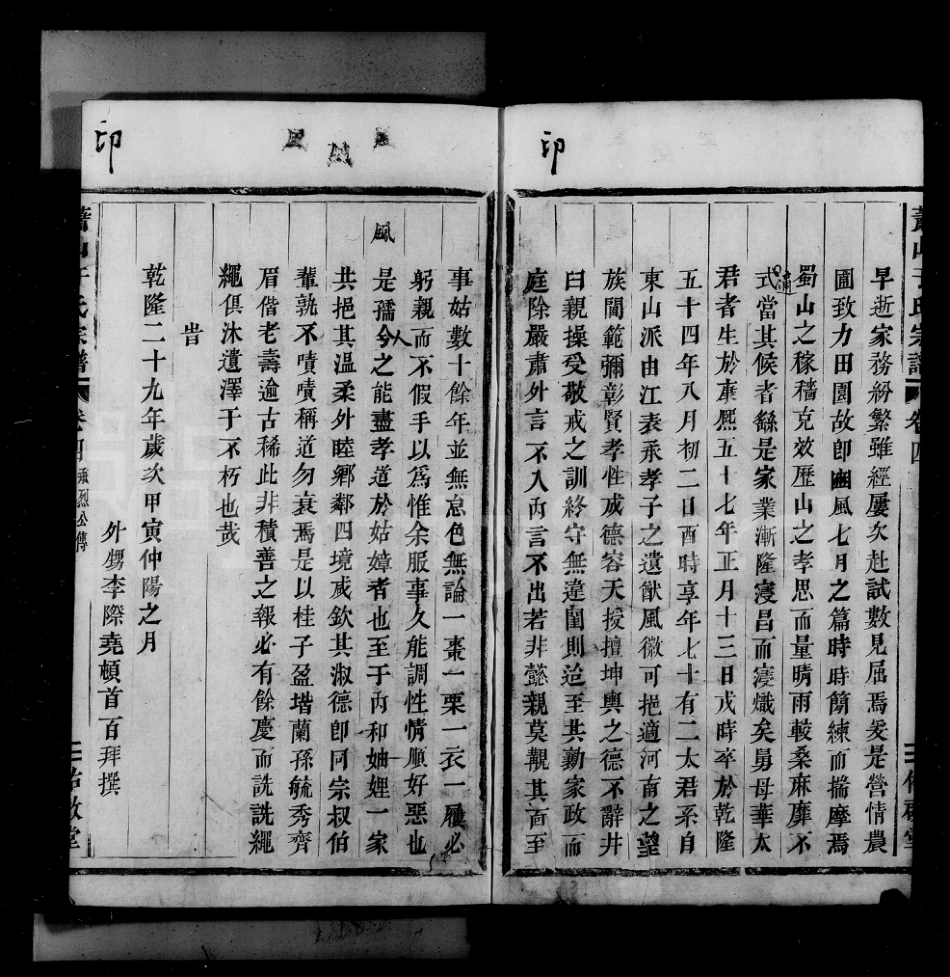 印
早逝家務紛繁雖經屢次赴試數見屈焉爰是營情農
圃致力田園故卽豳風七月之篇時時簡練而揣摩焉
蜀山之稼穡克效歷山之孝思而量晴雨較桑麻靡不
式當其候者繇是家業漸隆寖昌而寖熾矣舅母華太
君者生於康熙五十七年正月十三日戌時卒於乾隆
五十四年八月初二日酉時享年七十有二太君系自
東山派由江表承孝子之遺猷風徽可挹適河南之望
族閫範彌彰賢孝性成德容天授擅坤輿之德不辭井
臼親操受敬戒之訓終守無違閨則迨至其勷家政而
庭除嚴肅外言不入內言不出若非懿親莫覯其面至
蕭山于氏宗譜
卷四
印
風
事姑數十餘年並無怠色無論一棗一栗一衣一履必
躬親而不假手以爲惟余服事久能調性情順好惡也
是孺今之能盡孝道於姑嫜者也至于內和妯娌一家
人
共挹其溫柔外睦鄉鄰四境咸欽其淑德卽同宗叔伯
輩孰不嘖嘖稱道勿衰焉是以桂子盈堦蘭孫毓秀齊
眉偕老壽逾古稀此非積善之報必有餘慶而詵詵繩
繩俱沐遺澤于不朽也哉
旹
乾隆二十九年歲次甲寅仲陽之月
外甥李際堯頓首百拜撰
蕭山于氏宗譜
卷四